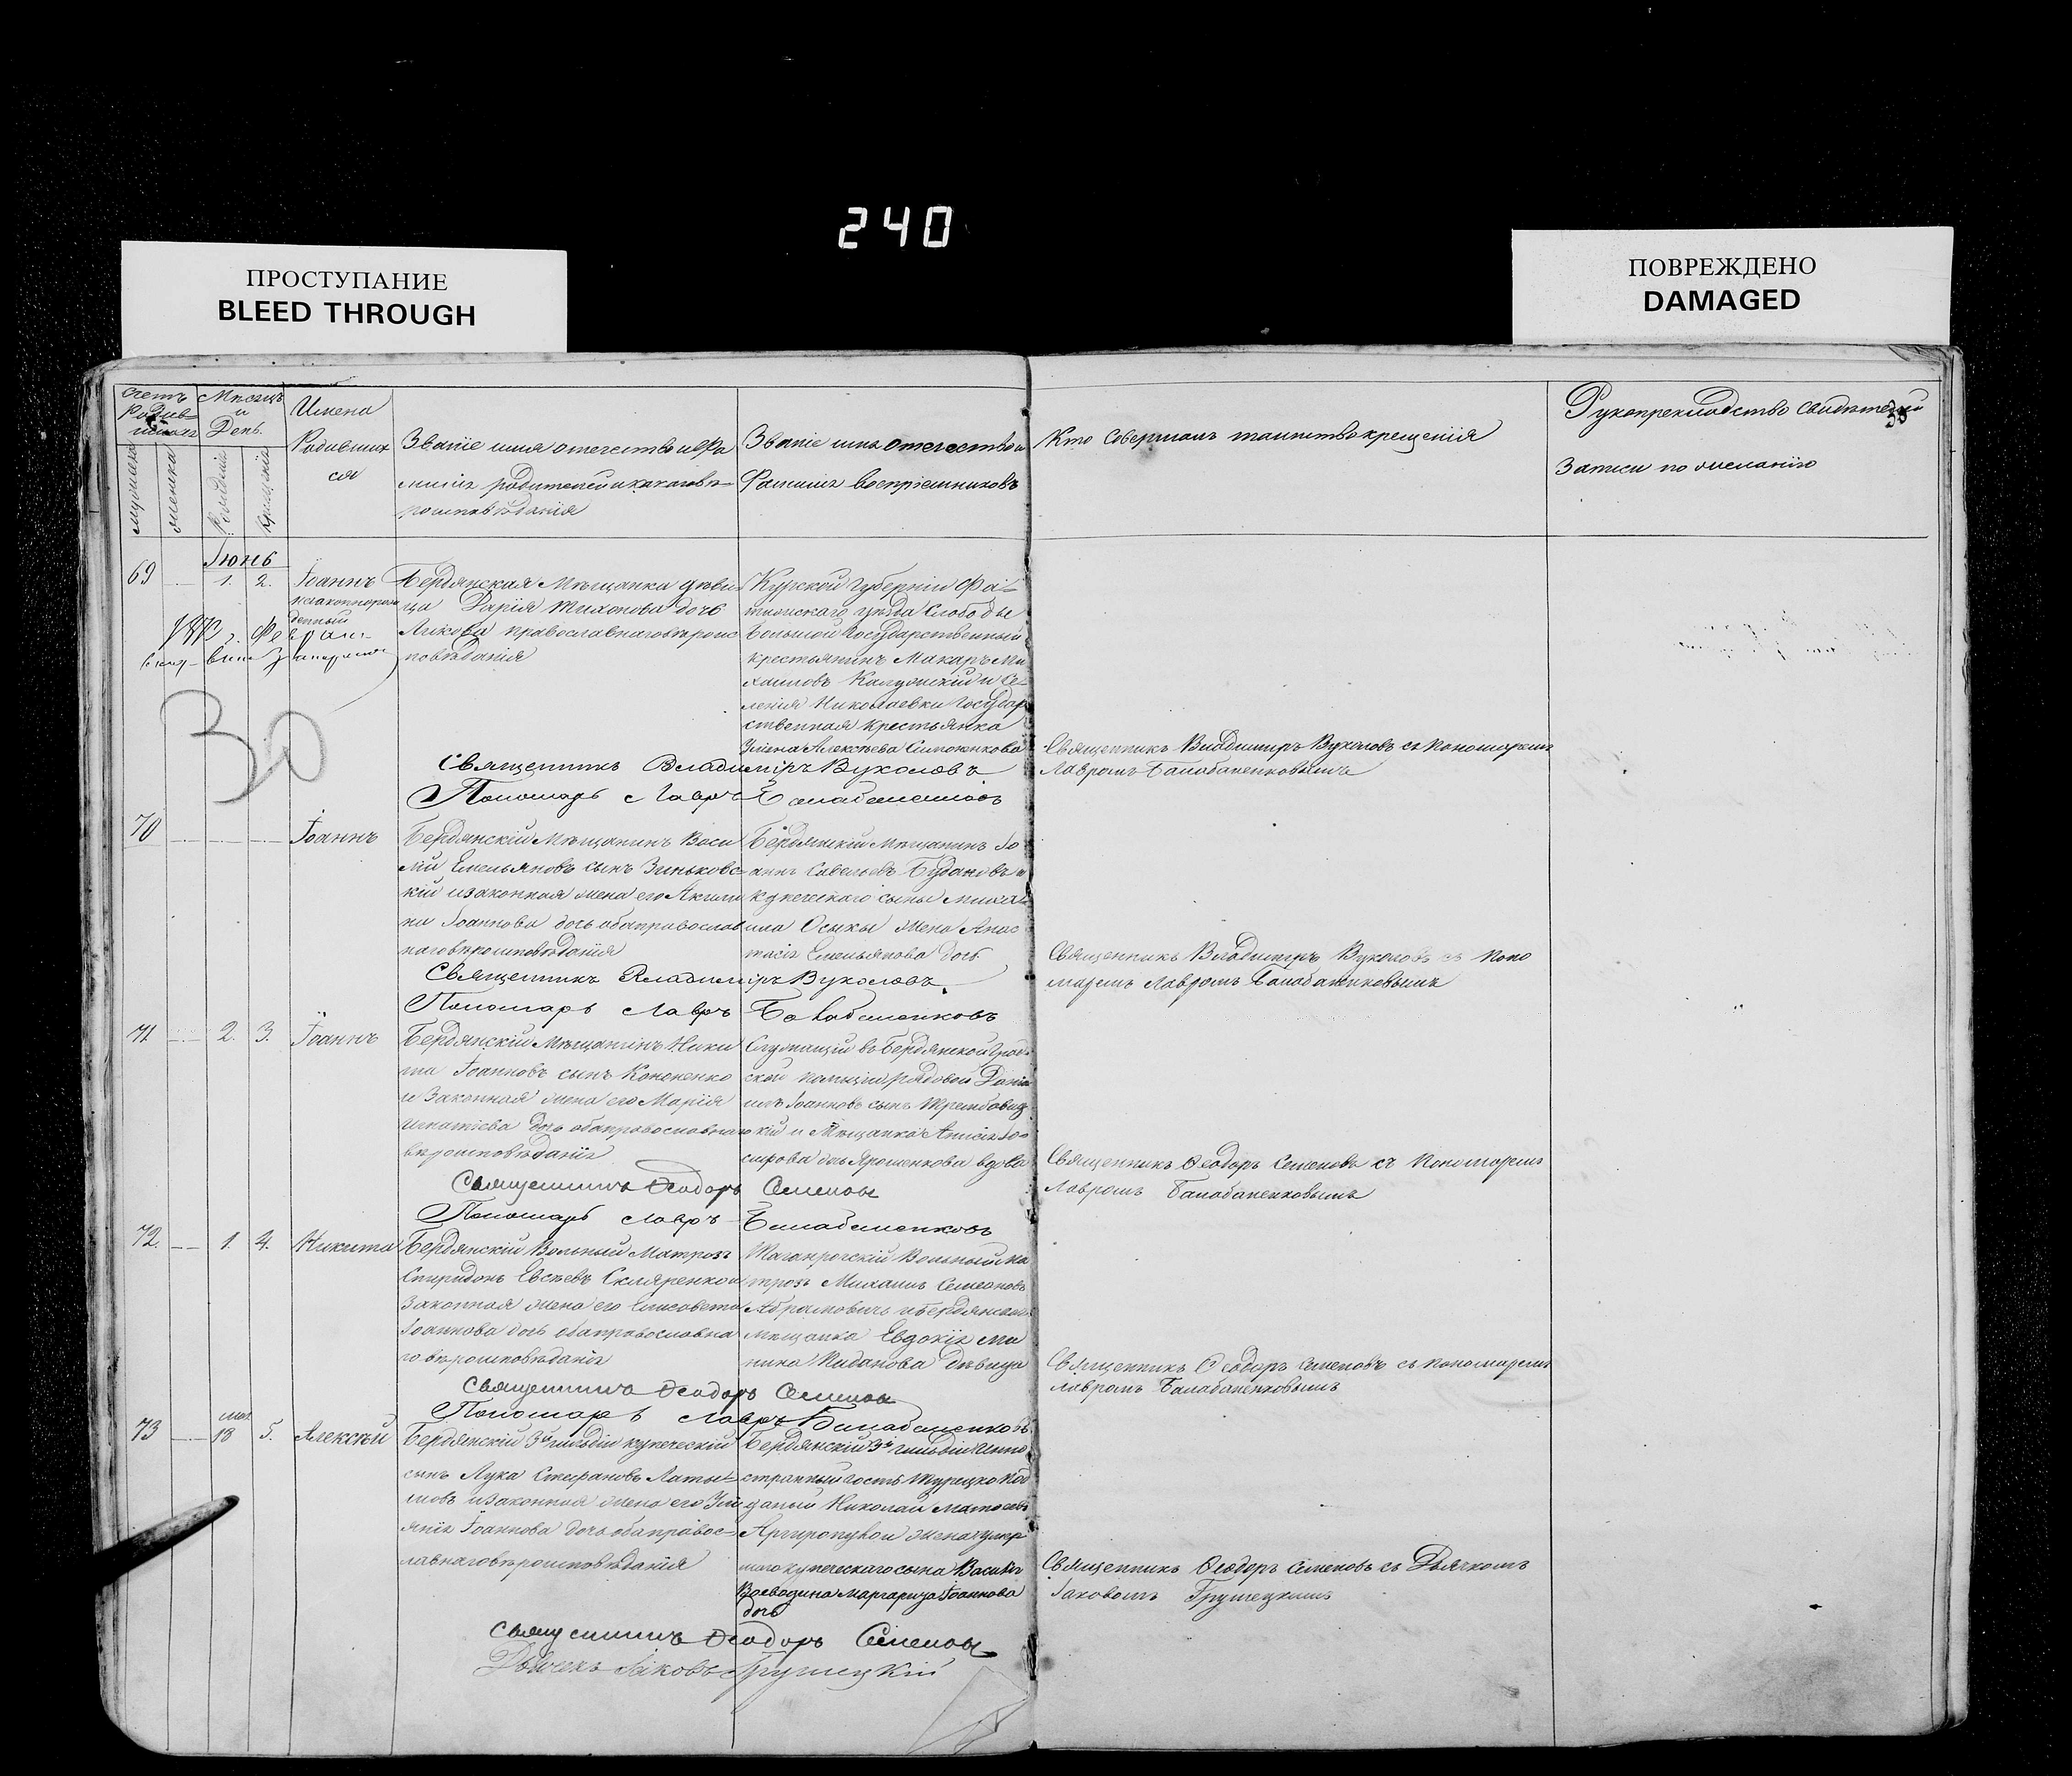 240
ПРОСТУПАНИЕ
BLEED THROUGH
ПОВРЕЖДЕНО
DAMAGED
Счетъ Родив-шихся
Мѣсяцъ и День.
Имена Родившихся
Званіе имя отечество и Фа
миліи родителей и какого вѣ-
роисповѣданія
Званіе имя отечество и
Фамилія воспріемниковъ
Кто совершалъ таинство крещенія
Рукоприкладство свидетелей
Записи по желанію
мужеска
женска
Рожденія
Крещенія
Іюнь
69 1. 2. Іоаннъ
незаконнорож
денный
Бердянская Мѣщанка дѣви
ца Дарія Тихонова дочь
православнаго вѣроис
повѣданія
Курской Губерніи Фа-
тежскаго уѣзда Слободы
Большой Государственный
крестьянинъ Макаръ Ми
хаиловъ и Се-
ленія Николаевки Государ
ственная Крестьянка
Алексѣева Симоненкова
Священникъ Владимиръ Вуколовъ съ Пономаремъ
Лавромъ Балабаненковымъ
30
Священникъ Владимиръ Вуколовъ
Пономарь Лавръ Балабаненковъ
70 Іоаннъ
Бердянскій Мѣщанинъ Васи
лій Емельяновъ сынъ Зинковс-
кій и законная жена его Акили
на Іоаннова дочь оба православ
наго вѣроисповѣданія
Бердянскій Мѣщанинъ Іо
аннъ Савельевъ Будановъ и
купеческаго сына Михаи
ила Осыки жена Анас
тасія Емельянова дочь
Священникъ Владимиръ Вуколовъ съ Поно
маремъ Лавромъ Балабаненковымъ
Священникъ Владимиръ Вуколовъ
Пономарь Лавръ Балабаненковъ
71 2. 3. Іоаннъ
Бердянскій Мѣщанинъ Ники
та Іоанновъ сынъ Кононенко
и Законная жена его Марія
Игнатіева дочь оба православнаго
вѣроисповѣданія
Служащій въ Бердянской Град
ской полиціи рядовой Дані
илъ Іоанновъ сынъ Трембовец
кій и Мѣщанка Анисія Іо
сифова дочь Ярошенкова вдова
Священникъ Ѳеодоръ Семеновъ съ Пономаремъ
Лавромъ Балабаненковымъ
Священникъ Ѳеодоръ Семеновъ
Пономарь Лавръ Балабаненковъ
72. 1. 4. Никита
Бердянскій Вольный Матрозъ
Спиридонъ Евсѣевъ Скляренко и
Законная жена его Елисавета
Іоаннова дочь оба православна
го вѣроисповѣданія
Таганрогскій Вольный Ма
трозъ Михаилъ Семеоновъ
Абрамовичъ и Бердянская
мѣщанка Евдокія Ми
нина Дѣвица
Священникъ Ѳеодоръ Семеновъ съ пономаремъ
Лавромъ Балабаненковымъ
Священникъ Ѳеодоръ Семеновъ
Пономарь Лавръ Балабаненковъ
73 мая 18 5. Алексѣй
Бердянскій 3й гильдіи купеческій
сынъ Лука Стефановъ
и Законная жена его Улі
янія Іоаннова дочь оба правос-
лавнаго вѣроисповѣданія
Бердянскій 3й гильдіи Инно
странный гость Турецко Под
даный Николай
и жена умер
шаго купеческаго сына Василія
Воеводина Маргарита Іоаннова
дочь
Священникъ Ѳеодоръ Семеновъ съ Дьячкомъ
Іаковомъ Грушецкимъ
Священникъ Ѳеодоръ Семеновъ
Дьячекъ Іаковъ Грушецкій